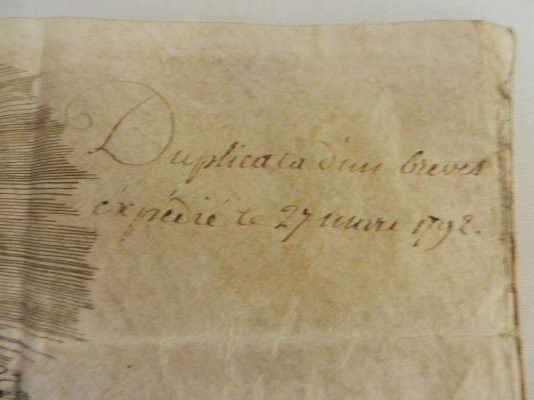 Duplicata d'un brevet
éxpédié le 27 mars 1792.